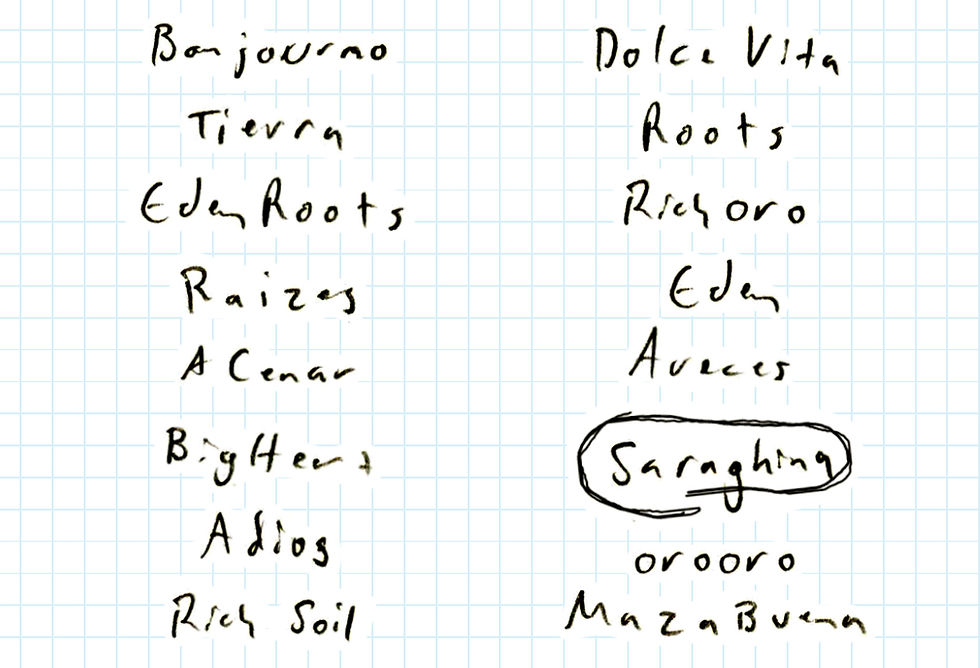 Bonjourno
Tierra
Eden Roots
Raizes
A Cenar
Big Heart
Adios
Rich Soil
Dolce Vita
Roots
Rich oro
Eden
Aveces
Saraghina
orooro
Maza Buena